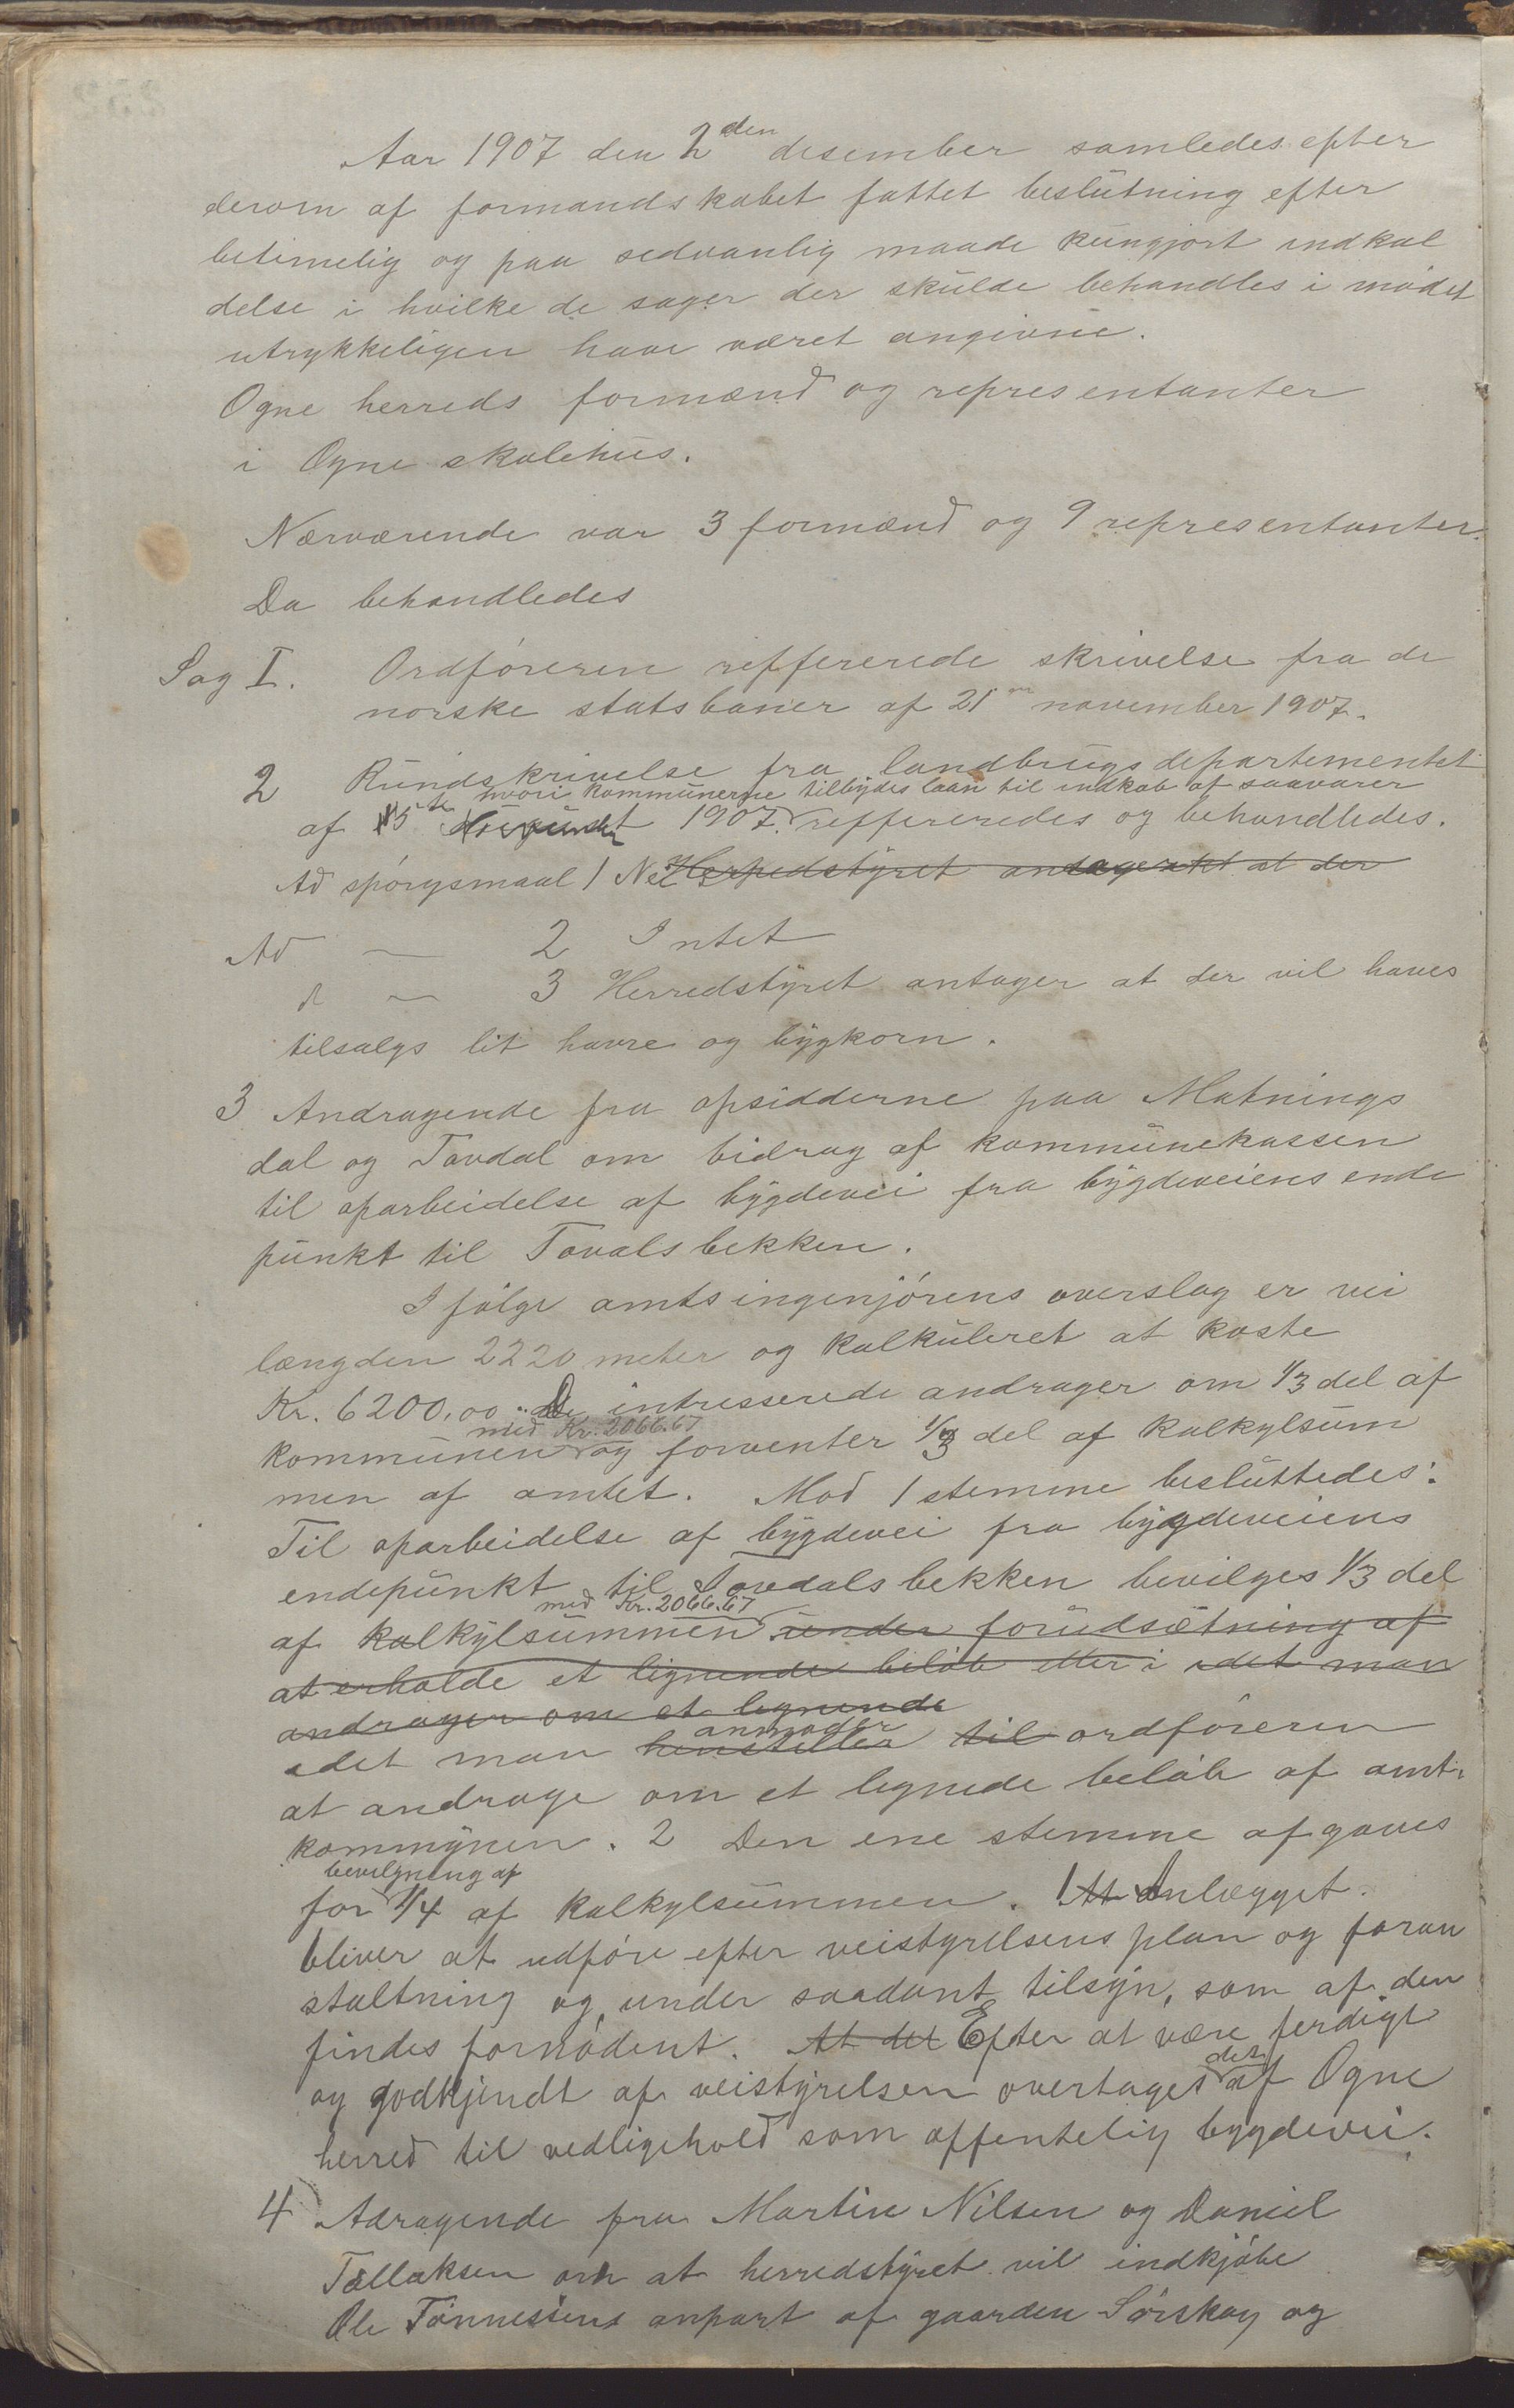 Aar 1907 den 2den desember samledes efter
derom af formandskabet fattet beslutning efter
betimelig og paa sedvanlig maade kungjort indkal
delse i hvilke de sager der skulde behandles i mødet
utrykkeligen have været angivne.
Ogne herreds formænd og representanter
i Ogne skolehus.
Nærværende var 3 formænd og 9 representanter.
Da behandledes
Sag I. Ordføreren reffererede skrivelse fra de
norske statsbaner af 21 november 1907.
2 Rundskrivelse fra landbrugsdepartementet
hvori kommunerne tilbydes laan til indkøb af saavarer
af 15de 1907. reffereredes og behandledes.
Ad spørgsmaal 1 Nei Herredstyret antager at der
Ad — 2 Intet
" — 3 Herredstyret antager at der vil haves
tilsalgs lit havre og bygkorn.
3 Andragende fra opsidderne paa Matnings
dal og Tovdal om bidrag af kommunekassen
til oparbeidelse af bygdevei fra bygdeveiens ende
punkt til Tovalsbekken.
Ifølge amtsingenjørens overslag er vei
længden 2220 meter og kalkuleret at koste
Kr. 6200,00. De intresserede andrager om 1/3 del af
med Kr. 2066.67
kommunen og forventer 1/3 del af kalkylsum
men af amtet. Mod 1 stemme besluttedes:
Til oparbeidelse af bygdevei fra bygdeveiens
endepunkt til Tovedalsbekken bevilges 1/3 del
med Kr. 2066.67
af kalkylsummen under forudsætning af
at erholde et lignende beløb eller i idet man
andrager om et lignende
anmoder
idet man henstiller til ordføreren
at andrage om et lignede beløb af amts
kommynen. 2 Den ene stemme afgaves
bevilgning af
for 1/4 af kalkylsummen. 1 At Anlægget
bliver at udføre efter veistyrelsens plan og foran
staltning og under saadant tilsyn, som af den
findes fornødent. At det Efter at være ferdigt
det
og godkjendt af veistyrelsen overtages af Ogne
herred til vedligehold som offentelig bygdevei.
4 Adragende fra Martin Nilsen og Daniel
Tallaksen om at herredstyret vil indkjøbe
Ole Tønnesens anpart af gaarden Sørskog og